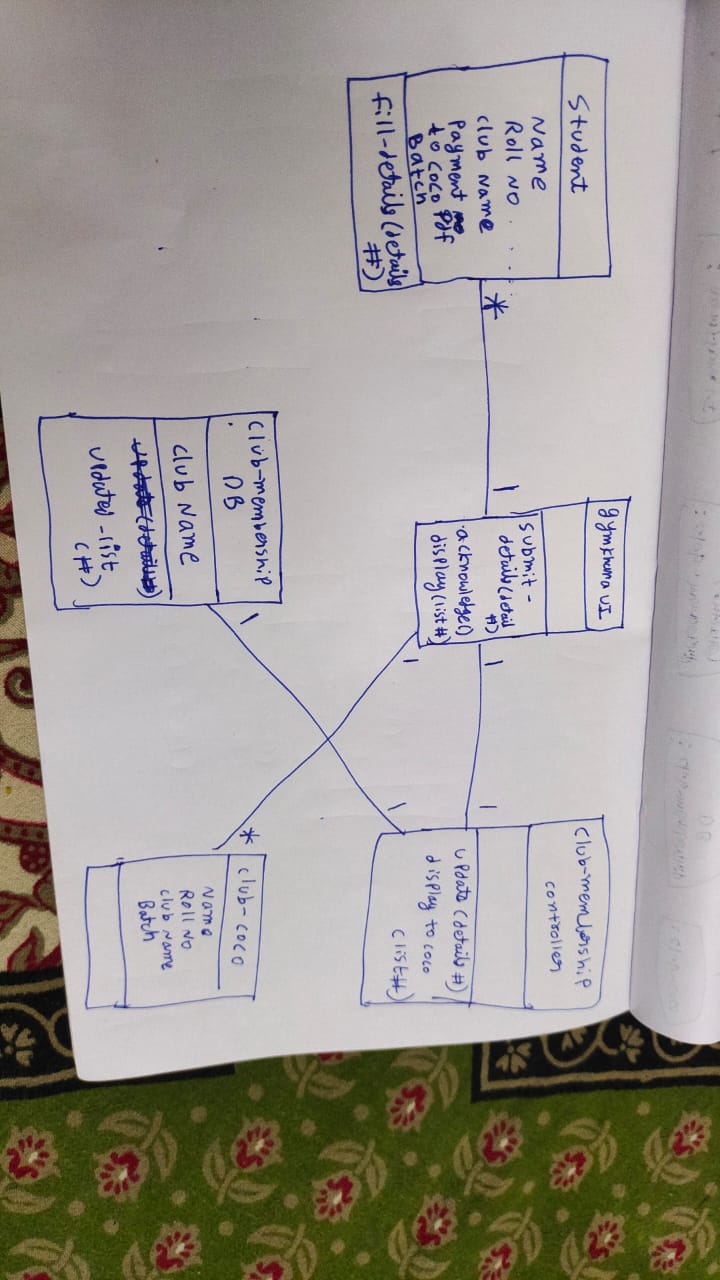 Student
Name
Roll No
Club Name
Payment
to coco Pdf
Batch
Fill-details (details
#)
*
1
gymkhana UI
submit-
details (detail
#)
acknowledge()
display (list #)
1
1
Club-membership
controller
update (details #)
display to coco
(list #)
1
1
Club-membership
DB
Club Name
update (details #)
updated-list
(#)
1
*
Club-coco
Name
Roll No
Club Name
Batch